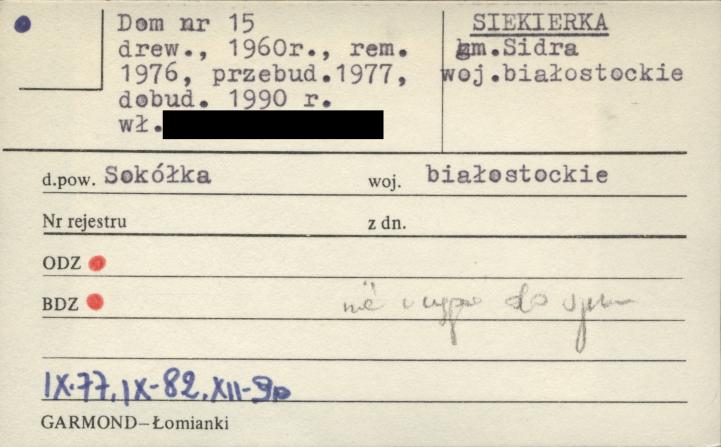 Dom nr 15
drew., 1960r., rem.
1976, przebud.1977,
dobud. 1990 r.
wł.
SIEKIERKA
gm.Sidra
woj.białostockie
d.pow. Sokółka woj. białostockie
Nr rejestru z dn.
ODZ
BDZ do
IX.77, IX-82, XII-90
GARMOND—Łomianki